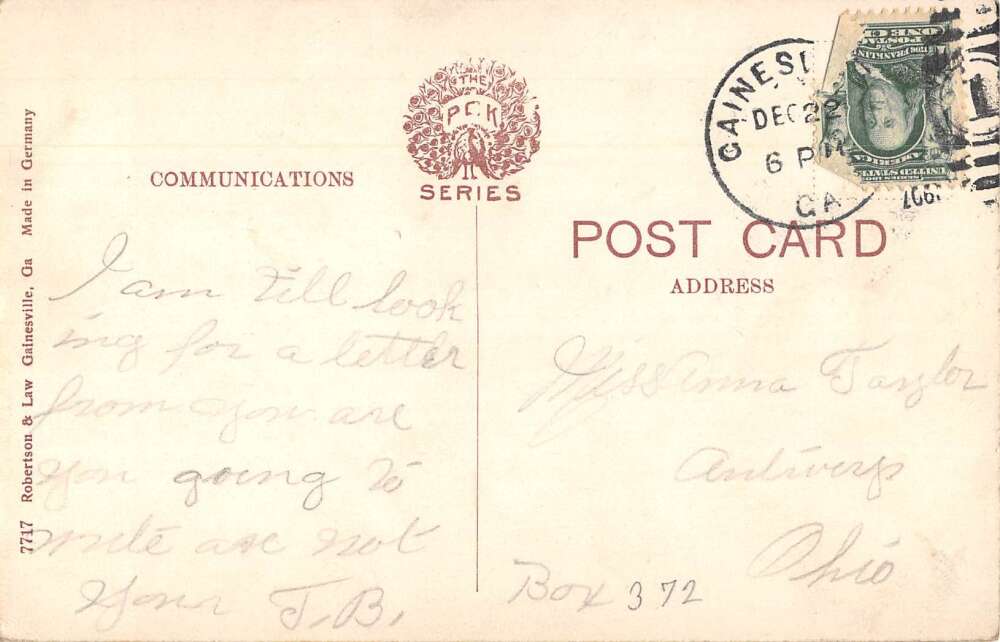 THE
P.C.K
SERIES
COMMUNICATIONS
POST CARD
ADDRESS
GAINESV
DEC 2
6 PM
GA
1907
ONE C
POSTAG
FRANKLIN
UNITED STATES
AMERICA
I am till look
ing for a letter
from you are
you going to
write are not
Your J.B.
Miss Anna Tayler
Antwerp
Ohio
Box 372
7717 Robertson & Law Gainesville, Ga Made in Germany